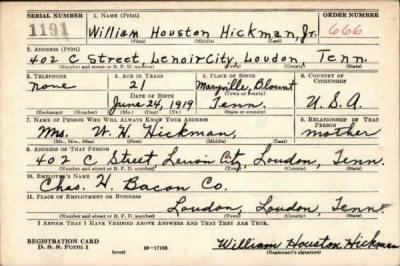 SERIAL NUMBER 1. NAME (Print) ORDER NUMBER
1191 William Houston Hickman, Jr. 666
(First) (Middle) (Last)
2. ADDRESS (Print)
402 C Street, Lenoir City, Loudon, Tenn.
(Number and street or R. F. D. number) (Town) (County) (State)
3. TELEPHONE 4. AGE IN YEARS 5. PLACE OF BIRTH 6. COUNTRY OF CITIZENSHIP
none 21 Maryville, Blount
DATE OF BIRTH (Town) (County)
June 24, 1919 Tenn. U.S.A.
(Exchange) (Number) (Mo.) (Day) (Yr.) (State or country)
7. NAME OF PERSON WHO WILL ALWAYS KNOW YOUR ADDRESS 8. RELATIONSHIP OF THAT PERSON
Mrs. W. H. Hickman, mother
(Mr., Mrs., Miss) (First) (Middle) (Last)
9. ADDRESS OF THAT PERSON
402 C Street Lenoir City, Loudon, Tenn.
(Number and street or R. F. D. number) (Town) (County) (State)
10. EMPLOYER'S NAME
Chas. H. Bacon Co.
11. PLACE OF EMPLOYMENT OR BUSINESS
Loudon, Loudon, Tenn.
(Number and street or R. F. D. number) (Town) (County) (State)
I AFFIRM THAT I HAVE VERIFIED ABOVE ANSWERS AND THAT THEY ARE TRUE.
REGISTRATION CARD
D. S. S. Form 1 (over) 16—17105 William Houston Hickman
(Registrant's signature)